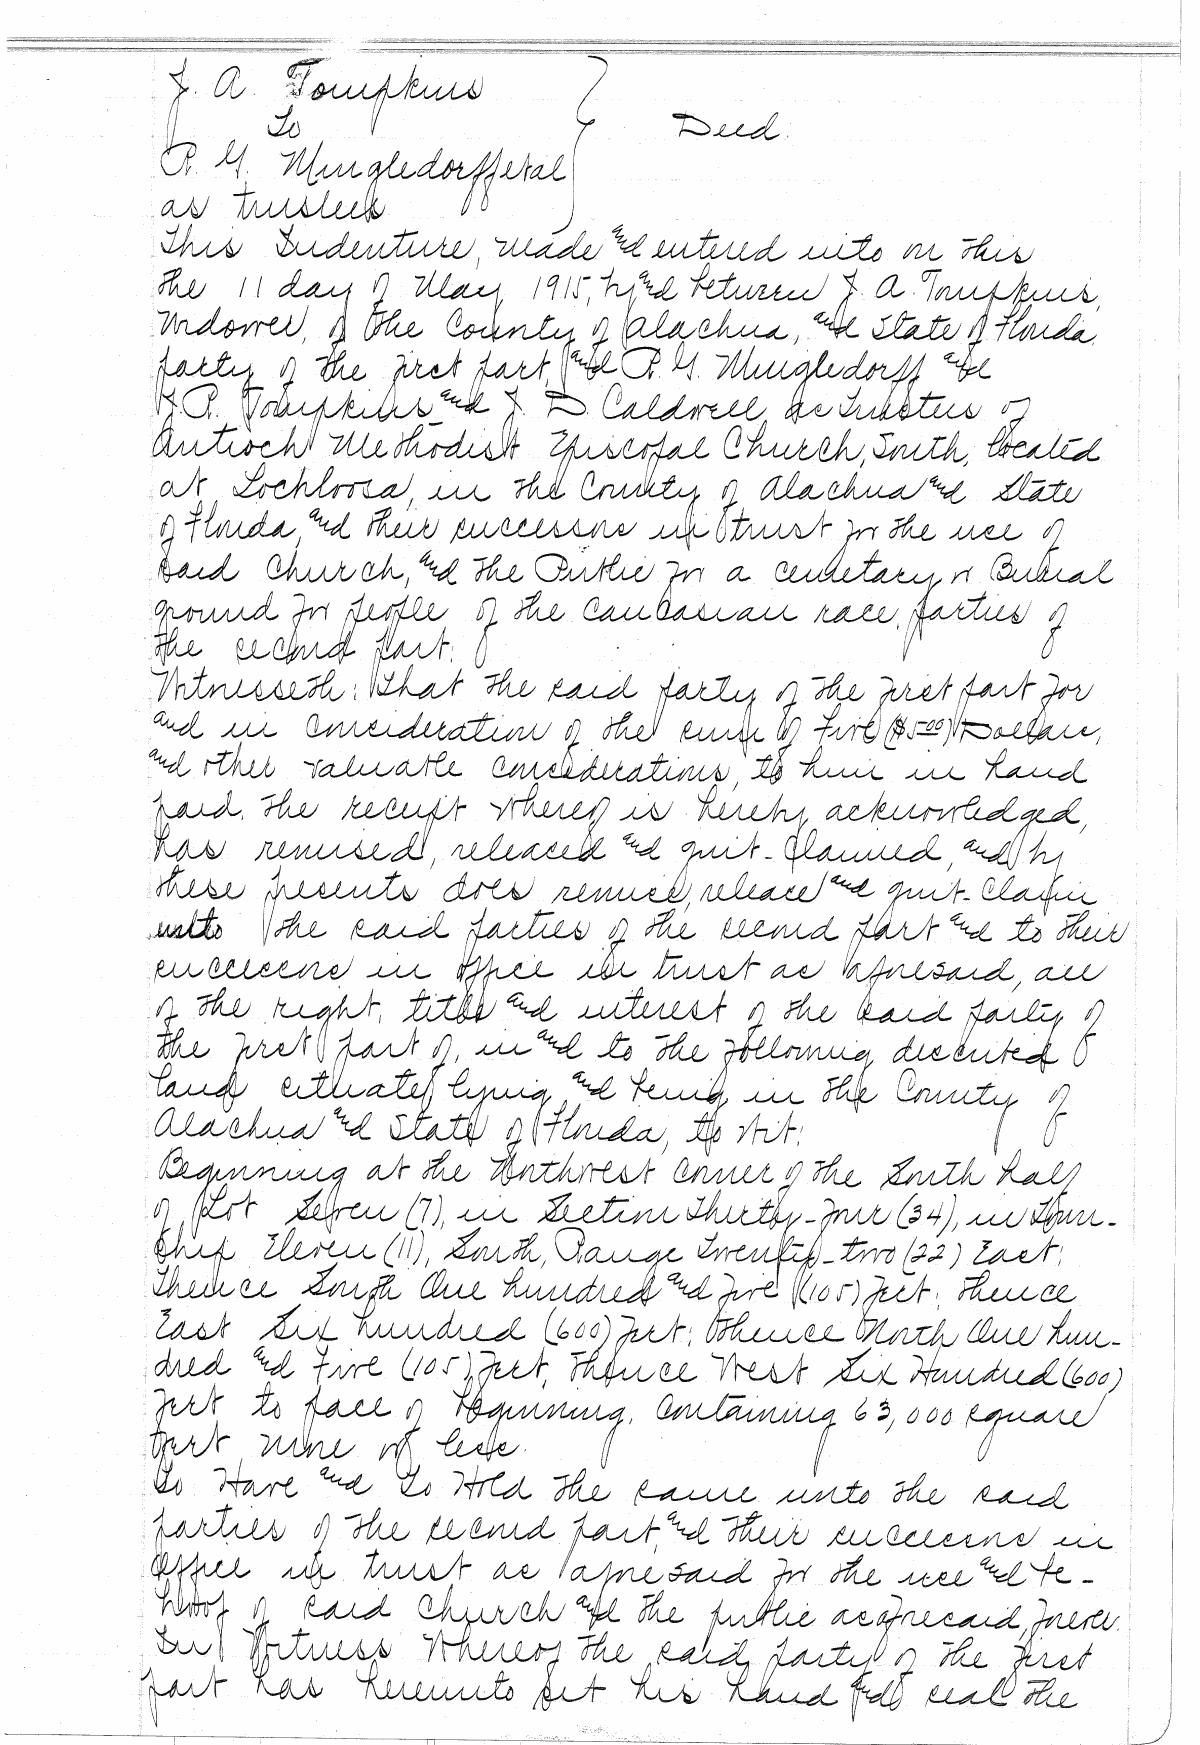 J. A. Tompkins
To
Deed.
R. G. Mingledorff et al
as trustees
This Indenture, made and entered into on this
the 11 day of May, 1915, by and between J. A. Tompkins,
Widower, of the County of Alachua, and State of Florida,
party of the first part, and R. G. Mingledorff and
J. R. Tompkins and J. D. Caldwell, as Trustees of
Antioch Methodist Episcopal Church, South, located
at Lochloosa, in the County of Alachua and State
of Florida, and their successors in trust for the use of
said Church, and the Public for a cemetary or Burial
ground for people of the caucasian race, parties of
the second part.
Witnesseth: That the said party of the first part for
and in consideration of the sum of Five ($5.00) Dollars,
and other valuable considerations, to him in hand
paid, the receipt whereof is hereby acknowledged,
has remised, released and quit-claimed, and by
these presents does remise, release and quit-claim
unto the said parties of the second part and to their
successors in office in trust as aforesaid, all
of the right, title and interest of the said party of
the first part of, in and to the following described
land situate, lying and being in the County of
Alachua and State of Florida, to wit:
Beginning at the Northwest corner of the South half
of Lot Seven (7), in Section Thirty-four (34), in Town-
ship Eleven (11), South, Range Twenty-two (22) East;
thence South One hundred and five (105) feet; thence
East Six hundred (600) feet; thence North One hun-
dred and Five (105) feet, thence West Six Hundred (600)
feet to place of beginning, containing 63,000 square
feet more or less.
To Have and To Hold the same unto the said
parties of the second part, and their successors in
office in trust as aforesaid for the use and be-
hoof of said Church and the public as aforesaid, forever.
In Witness Whereof the said party of the first
part has hereunto set his hand and seal the